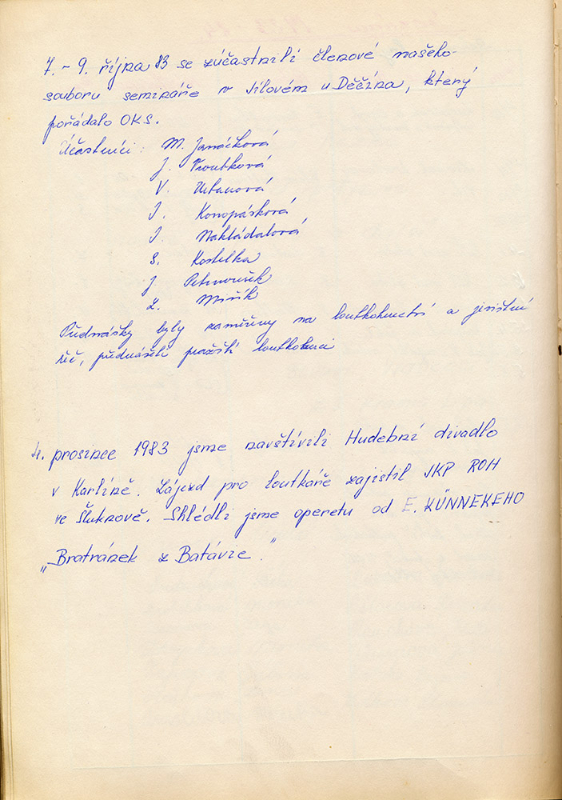 7. - 9. října 83 se zúčastnili členové našeho
souboru semináře v Jílovém u Děčína, který
pořádalo OKS.
Účastníci: M. Janáčková
J. Kroutková
V. Urbanová
J. Konopásková
J. Nakládalová
S. Kostelka
J
Z. Mišík
Přednášky byly zaměřeny na loutkoherectví a jevištní
řeč, přednášeli pražští loutkoherci
4. prosince 1983 jsme navštívili Hudební divadlo
v Karlíně. Zájezd pro loutkáře zajistil JKP ROH
ve Šluknově. Shlédli jsme operetu od E. KÜNNEKEHO
„Bratránek z Batávie."